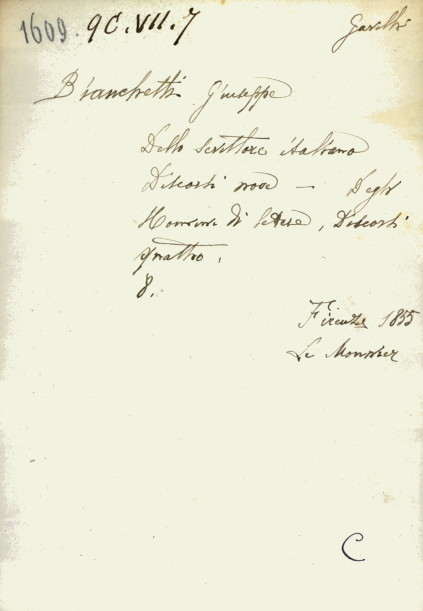 1609. 9C.VII.7
Bianchetti Giuseppe
Dello Scrittore italiano
Discorsi nove — Degli
Uomini di lettere, Discorsi
quattro.
8.
Firenze 1855
Le Monnier
C